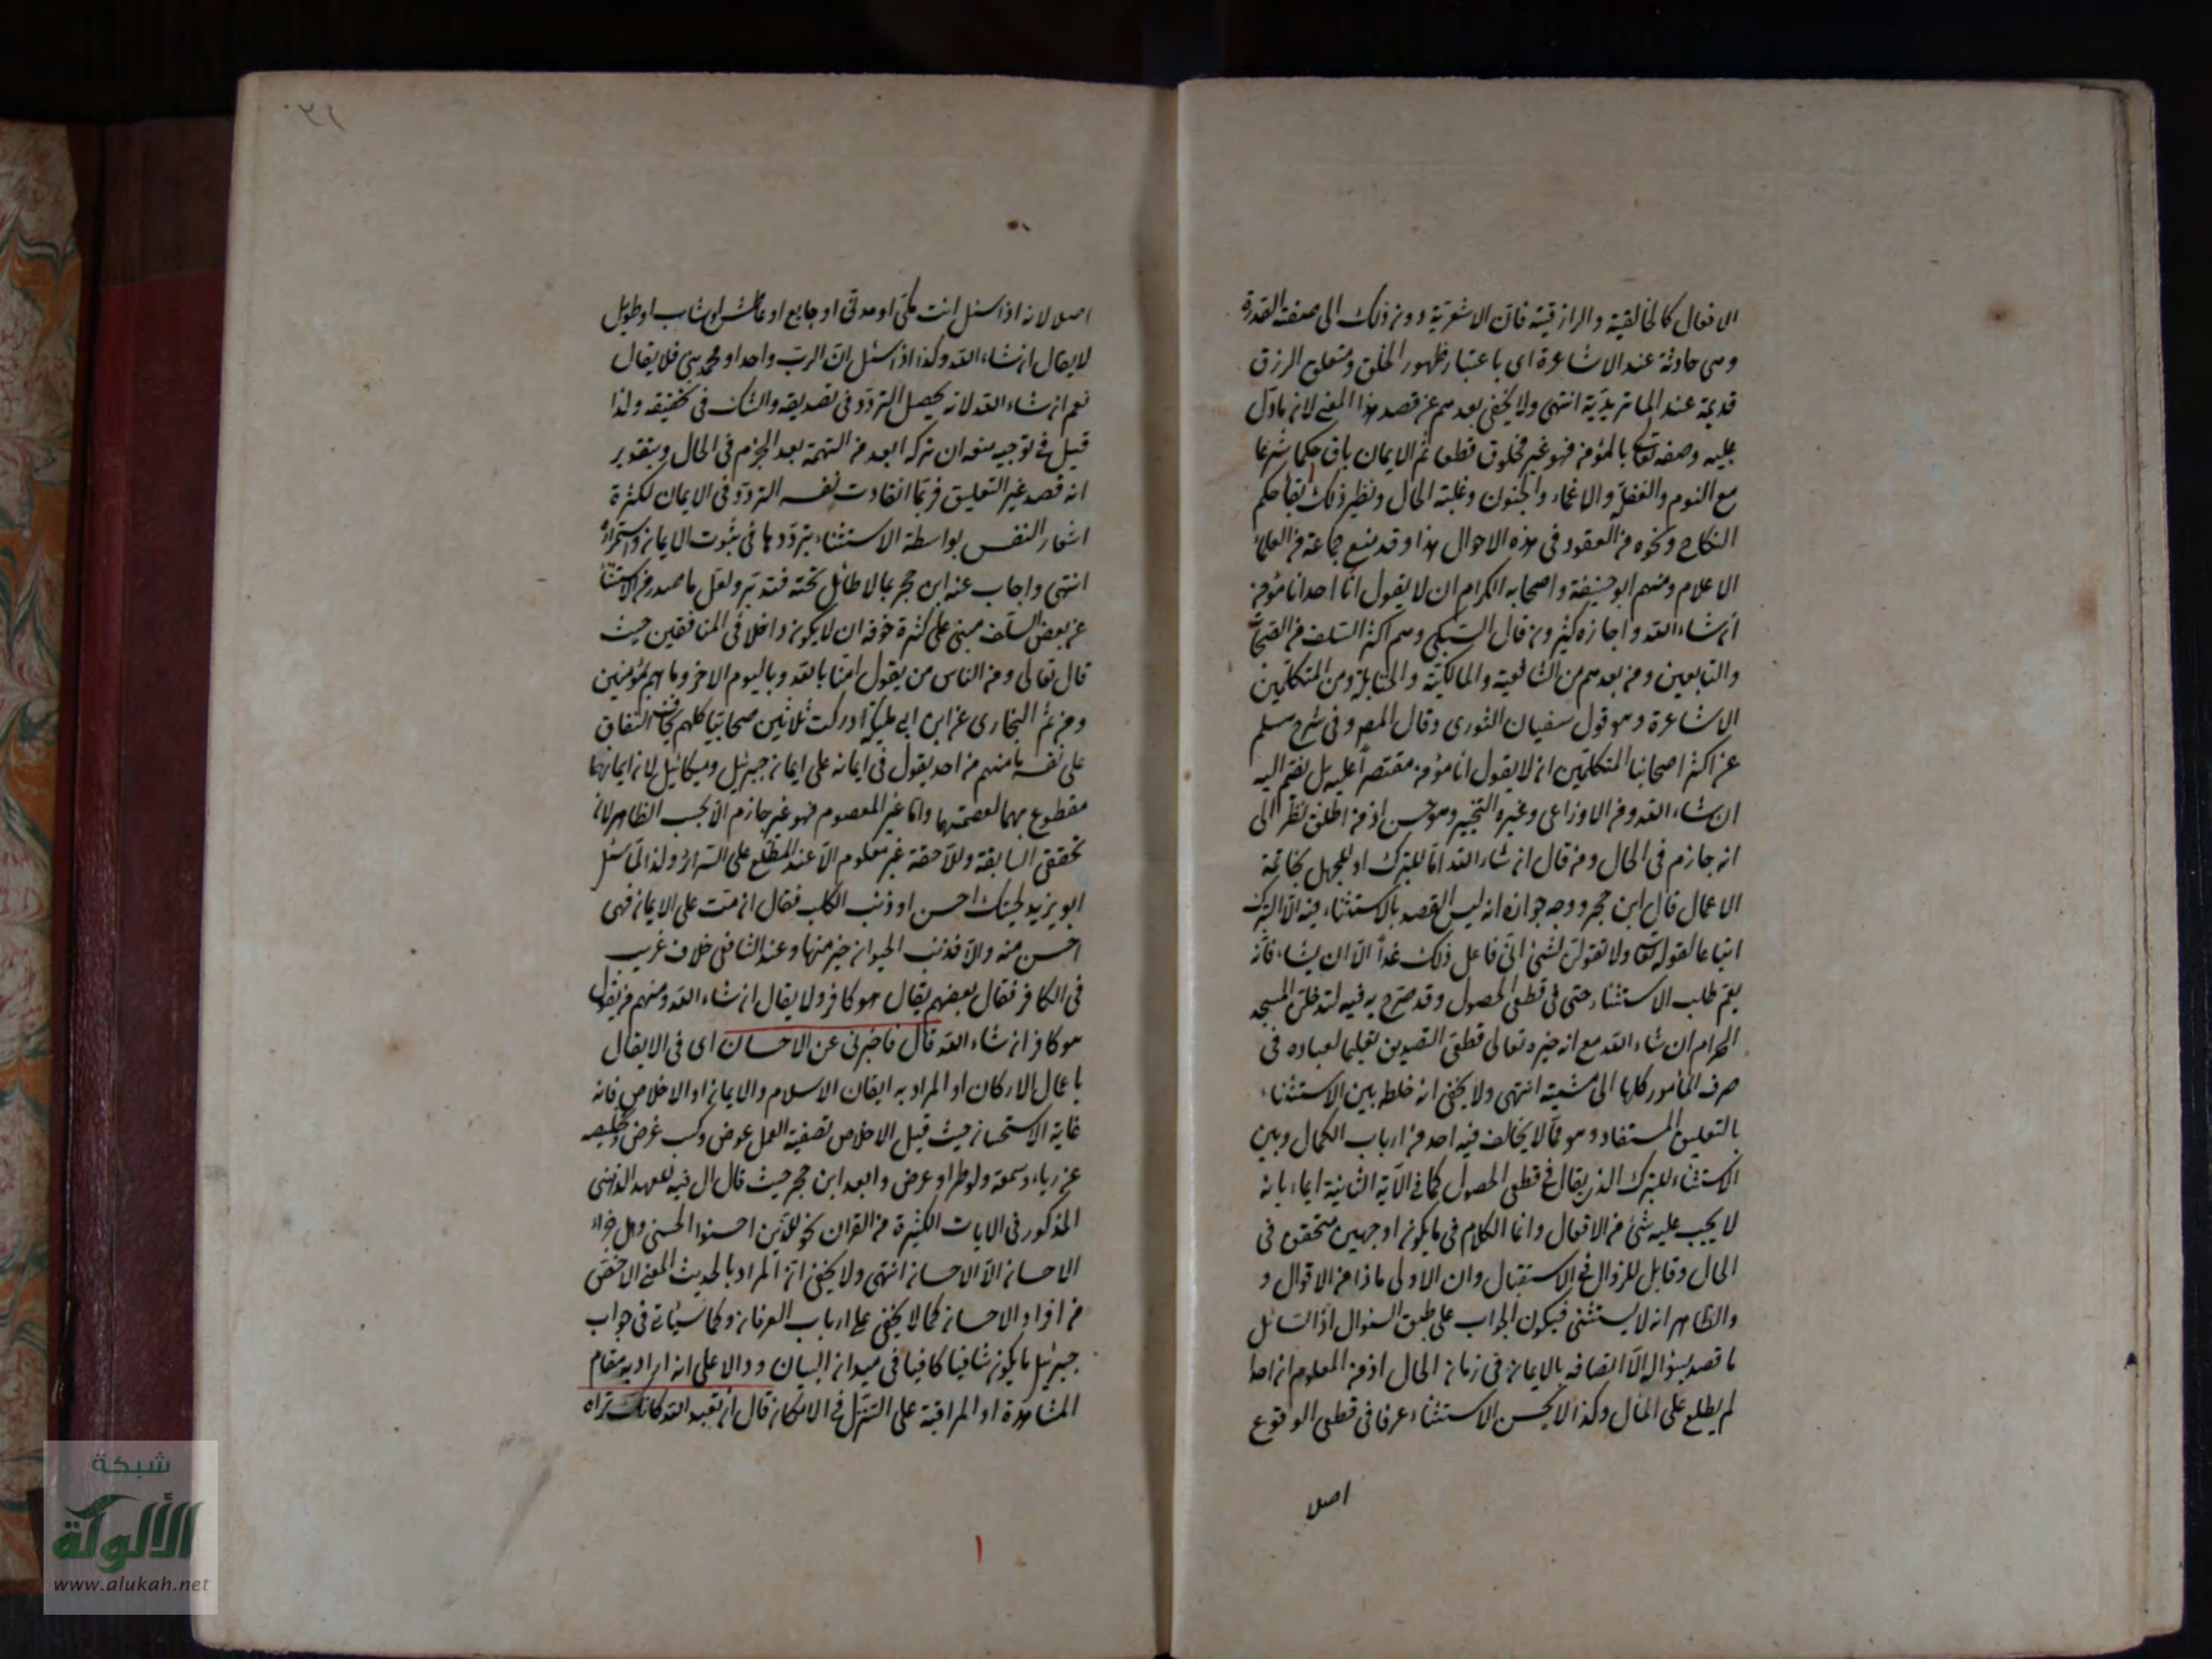 الافعال كالخالقية والرازقية فان الاشعرية يردون ذلك الى صفة القدرة
وهى حادثة عند الاشاعرة اى باعتبار ظهور الخلق ومتعلق الرزق
قديمة عند الماتريدية انتهى ولا يخفى بعدهم عن قصد هذا المعنى لان مادل
عليه وصفه تعالى بالمؤمن فهو غير مخلوق قطعا ثم الايمان باق حكما شرعا
مع النوم والغفلة والاغماء والجنون وغلبة الحال ونظير ذلك بقاء حكم
النكاح ونحوه من العقود فى هذه الاحوال هذا وقد منع جماعة من العلماء
الاعلام ومنهم ابو حنيفة واصحابه الكرام ان لا يقول انا احد انا مؤمن
ان شاء الله واجازه كثيرون قال السبكى وهم اكثر السلف من الصحابة
والتابعين ومن بعدهم من الشافعية والمالكية والحنابلة ومن المتكلمين
الاشاعرة وهو قول سفيان الثورى وقال المص وفى شرح مسلم
عن اكثر اصحابنا المتكلمين ان لا يقول انا مؤمن مقتصرا عليه بل يضم اليه
ان شاء الله وعن الاوزاعى وغيره التخيير وهو حسن اذ من اطلق نظر الى
انه جازم فى الحال ومن قال ان شاء الله اما للتبرك او للجهل بخاتمة
الاعمال قال ابن حجر ووجه جوازه انه ليس القصد بالاستثناء فيه الا التبرك
اتباعا لقوله تعالى ولا تقولن لشئ انى فاعل ذلك غدا الا ان يشاء فانه
يعم طلب الاستثناء حتى فى قطعى الحصول وقد صرح به فيه لتدخلن المسجد
الحرام ان شاء الله مع انه خبره تعالى قطعى التصديق تعليما لعباده فى
صرف الامور كلها الى مشيته انتهى ولا يخفى انه خلط بين الاستثناء
بالتعليق المستفاد وهو مما لا يخالف فيه احد من ارباب الكمال وبين
الاستثناء للتبرك الذى يقال فى قطعى الحصول كما فى الآية الثانية ايماء بانه
لا يجب عليه شئ من الافعال وانما الكلام فى ما يكون اوجهين متحقق فى
الحال وقابل للزوال فى الاستقبال وان الاولى ماذا من الاقوال و
والظاهر انه لا يستثنى فيكون الجواب على طبق السؤال اذ السائل
ما قصد بسؤاله الا اتصافه بالايمان فى زمان الحال اذ من المعلوم ان احدا
لم يطلع على المآل وكذا لا يحسن الاستثناء عرفا فى قطعى الوقوع
اصلا
اصلا لانه اذا سئل انت مكى او مدنى او جايع او عاطش او شاب او طويل
لا يقال ان شاء الله وكذا اذا سئل ان الرب واحد او محمد نبى فلا يقال
نعم ان شاء الله لانه يحصل التردد فى تصديقه والشك فى تحقيقه ولذا
قيل فى توجيه منعه ان تركه ابعد من التهمة بعد الجزم فى الحال وبتقدير
انه قصد غير التعليق فربما انقادت نفسه التردد فى الايمان لكثرة
اشعار النفس بواسطة الاستثناء بترددها فى ثبوت الايمان واستمراره
انتهى واجاب عنه ابن حجر بما لا طائل تحته فتدبر ولعل ما صدر من الاستثناء
عن بعض السلف مبنى على كثرة خوفه ان لا يكون داخلا فى المنافقين حيث
قال تعالى ومن الناس من يقول امنا بالله وباليوم الاخر وما هم بمؤمنين
ومن ثم البخارى عن ابن ابى مليكة ادركت ثلاثين صحابيا كلهم يخاف النفاق
على نفسه ما منهم من احد يقول فى ايمانه على ايمان جبرئيل وميكائيل لان ايمانهما
مقطوع بهما لعصمتهما واما غير المعصوم فهو غير جازم الا بحسب الظاهر لان
تحقق السابقة واللاحقة غير معلوم الا عند المطلع على السرائر ولذا لما سئل
ابو يزيد لحيتك احسن او ذنب الكلب فقال ان مت على الايمان فهى
احسن منه والا فذنب الحيوان خير منها وعند الشافعى خلاف غريب
فى الكافر فقال بعضهم يقال هو كافر ولا يقال ان شاء الله ومنهم من يقول
هو كافر ان شاء الله قال فاخبرنى عن الاحسان اى فى الايقال
باعمال الاركان او المراد به ايقان الاسلام والايمان او الاخلاص فانه
غاية الاستحسان حيث قيل الاخلاص تصفية العمل عوض وكسب غرض وتخليصه
عن رياء وسمعة ولو طراو عرض وابعد ابن حجر حيث قال ال فيه للعهد الذهنى
المذكور فى الايات الكثيرة من القران نحو للذين احسنوا الحسنى وهل جزاء
الاحسان الا الاحسان انتهى ولا يخفى ان المراد بالحديث المعنى الاخص
من افراد الاحسان كما لا يخفى على ارباب العرفان وكما سياتى فى جواب
جبرئيل ما يكون شافيا كافيا فى ميدان البيان ودالا على انه اراد به مقام
المشاهدة او المراقبة على التنزل فى الامكان قال ان تعبد الله كانك تراه
شبكة
الألوكة
www.alukah.net